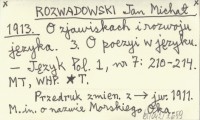 ROZWADOWSKI Jan Michał
1913. O zjawiskach i rozwoju
języka. 3. O poezyi w języku.
– Język Pol. 1, nr 7: 210–214.
MT, WHP. *T.
Przedruk zmien. z → iw. 1911.
M.in. o nazwie Morskiego Oka.